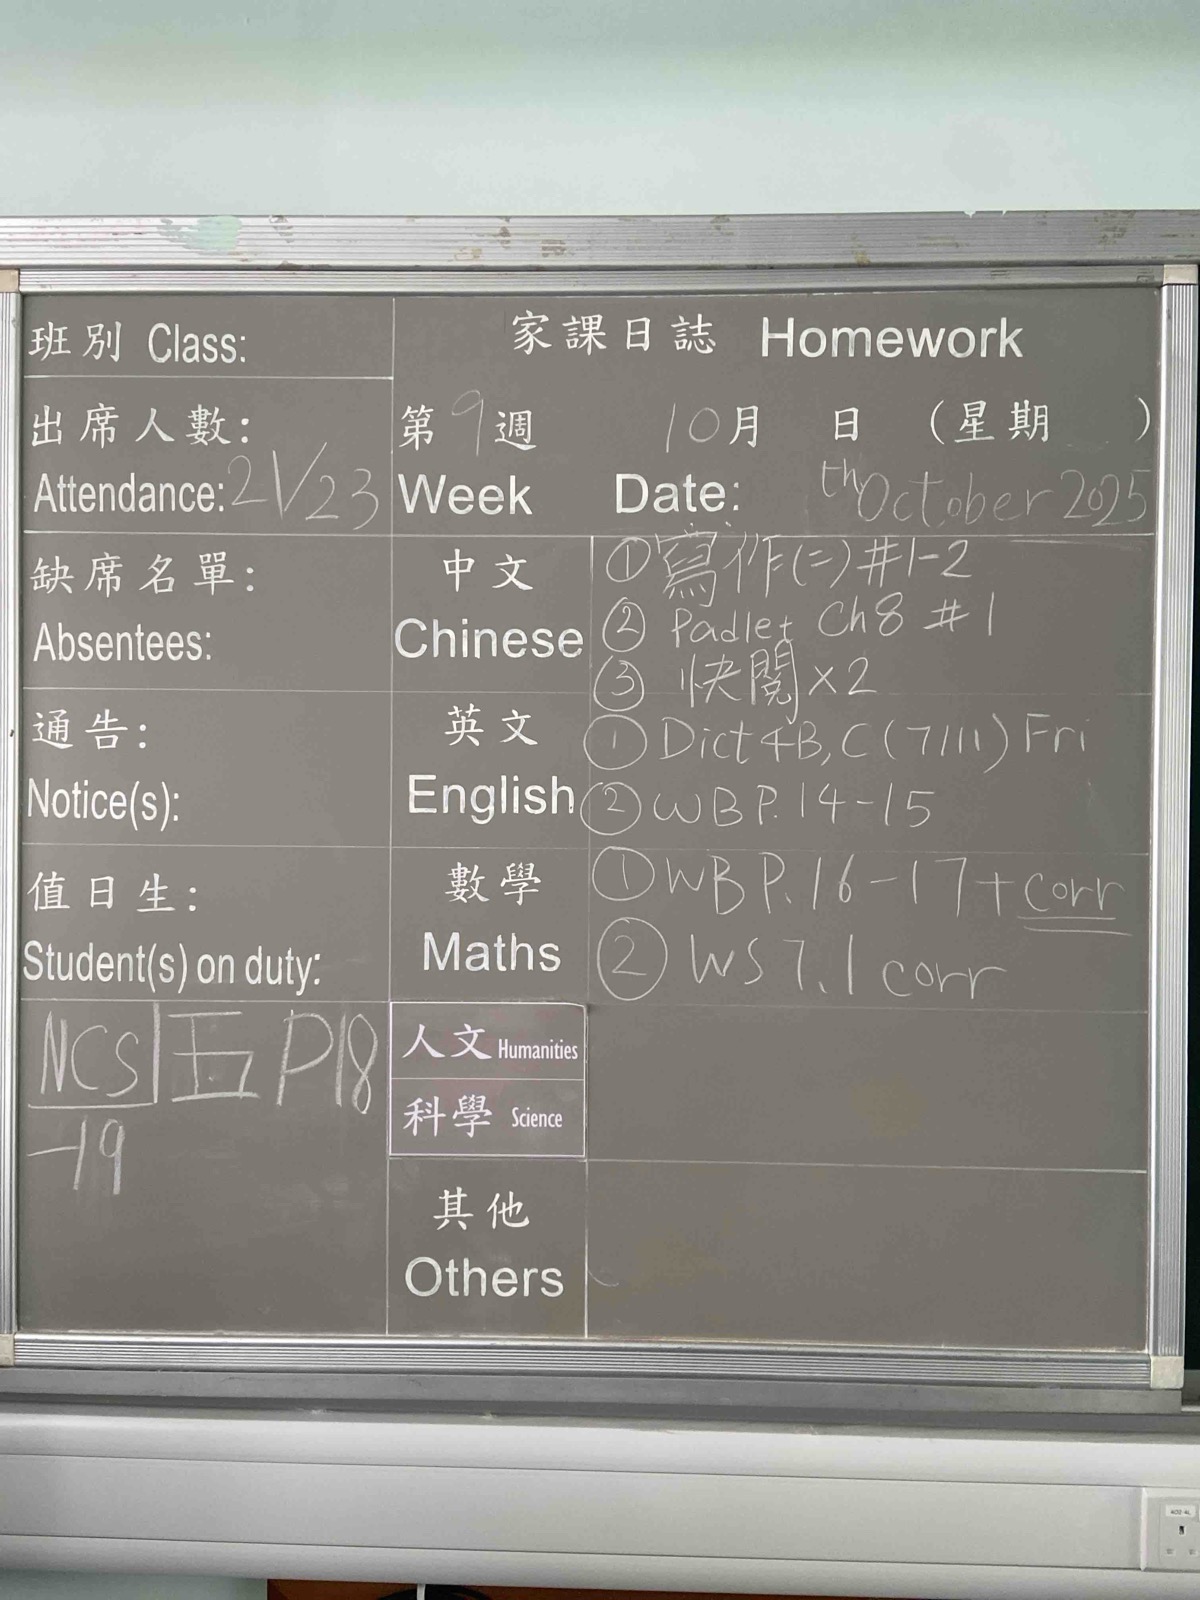 班別 Class:
家課日誌 Homework
出席人數:
Attendance: 21/23
第9週 10月 日 (星期 )
Week Date: th October 2025
缺席名單:
Absentees:
中文
Chinese
①寫作(二)#1-2
② Padlet Ch8 #1
③ 快閱×2
通告:
Notice(s):
英文
English
① Dict 4B, C (7/11) Fri
② WB P.14-15
值日生:
Student(s) on duty:
數學
Maths
① WB P.16-17+corr
② WS 7.1 corr
NCS 五 P18
-19
人文 Humanities
科學 Science
其他
Others